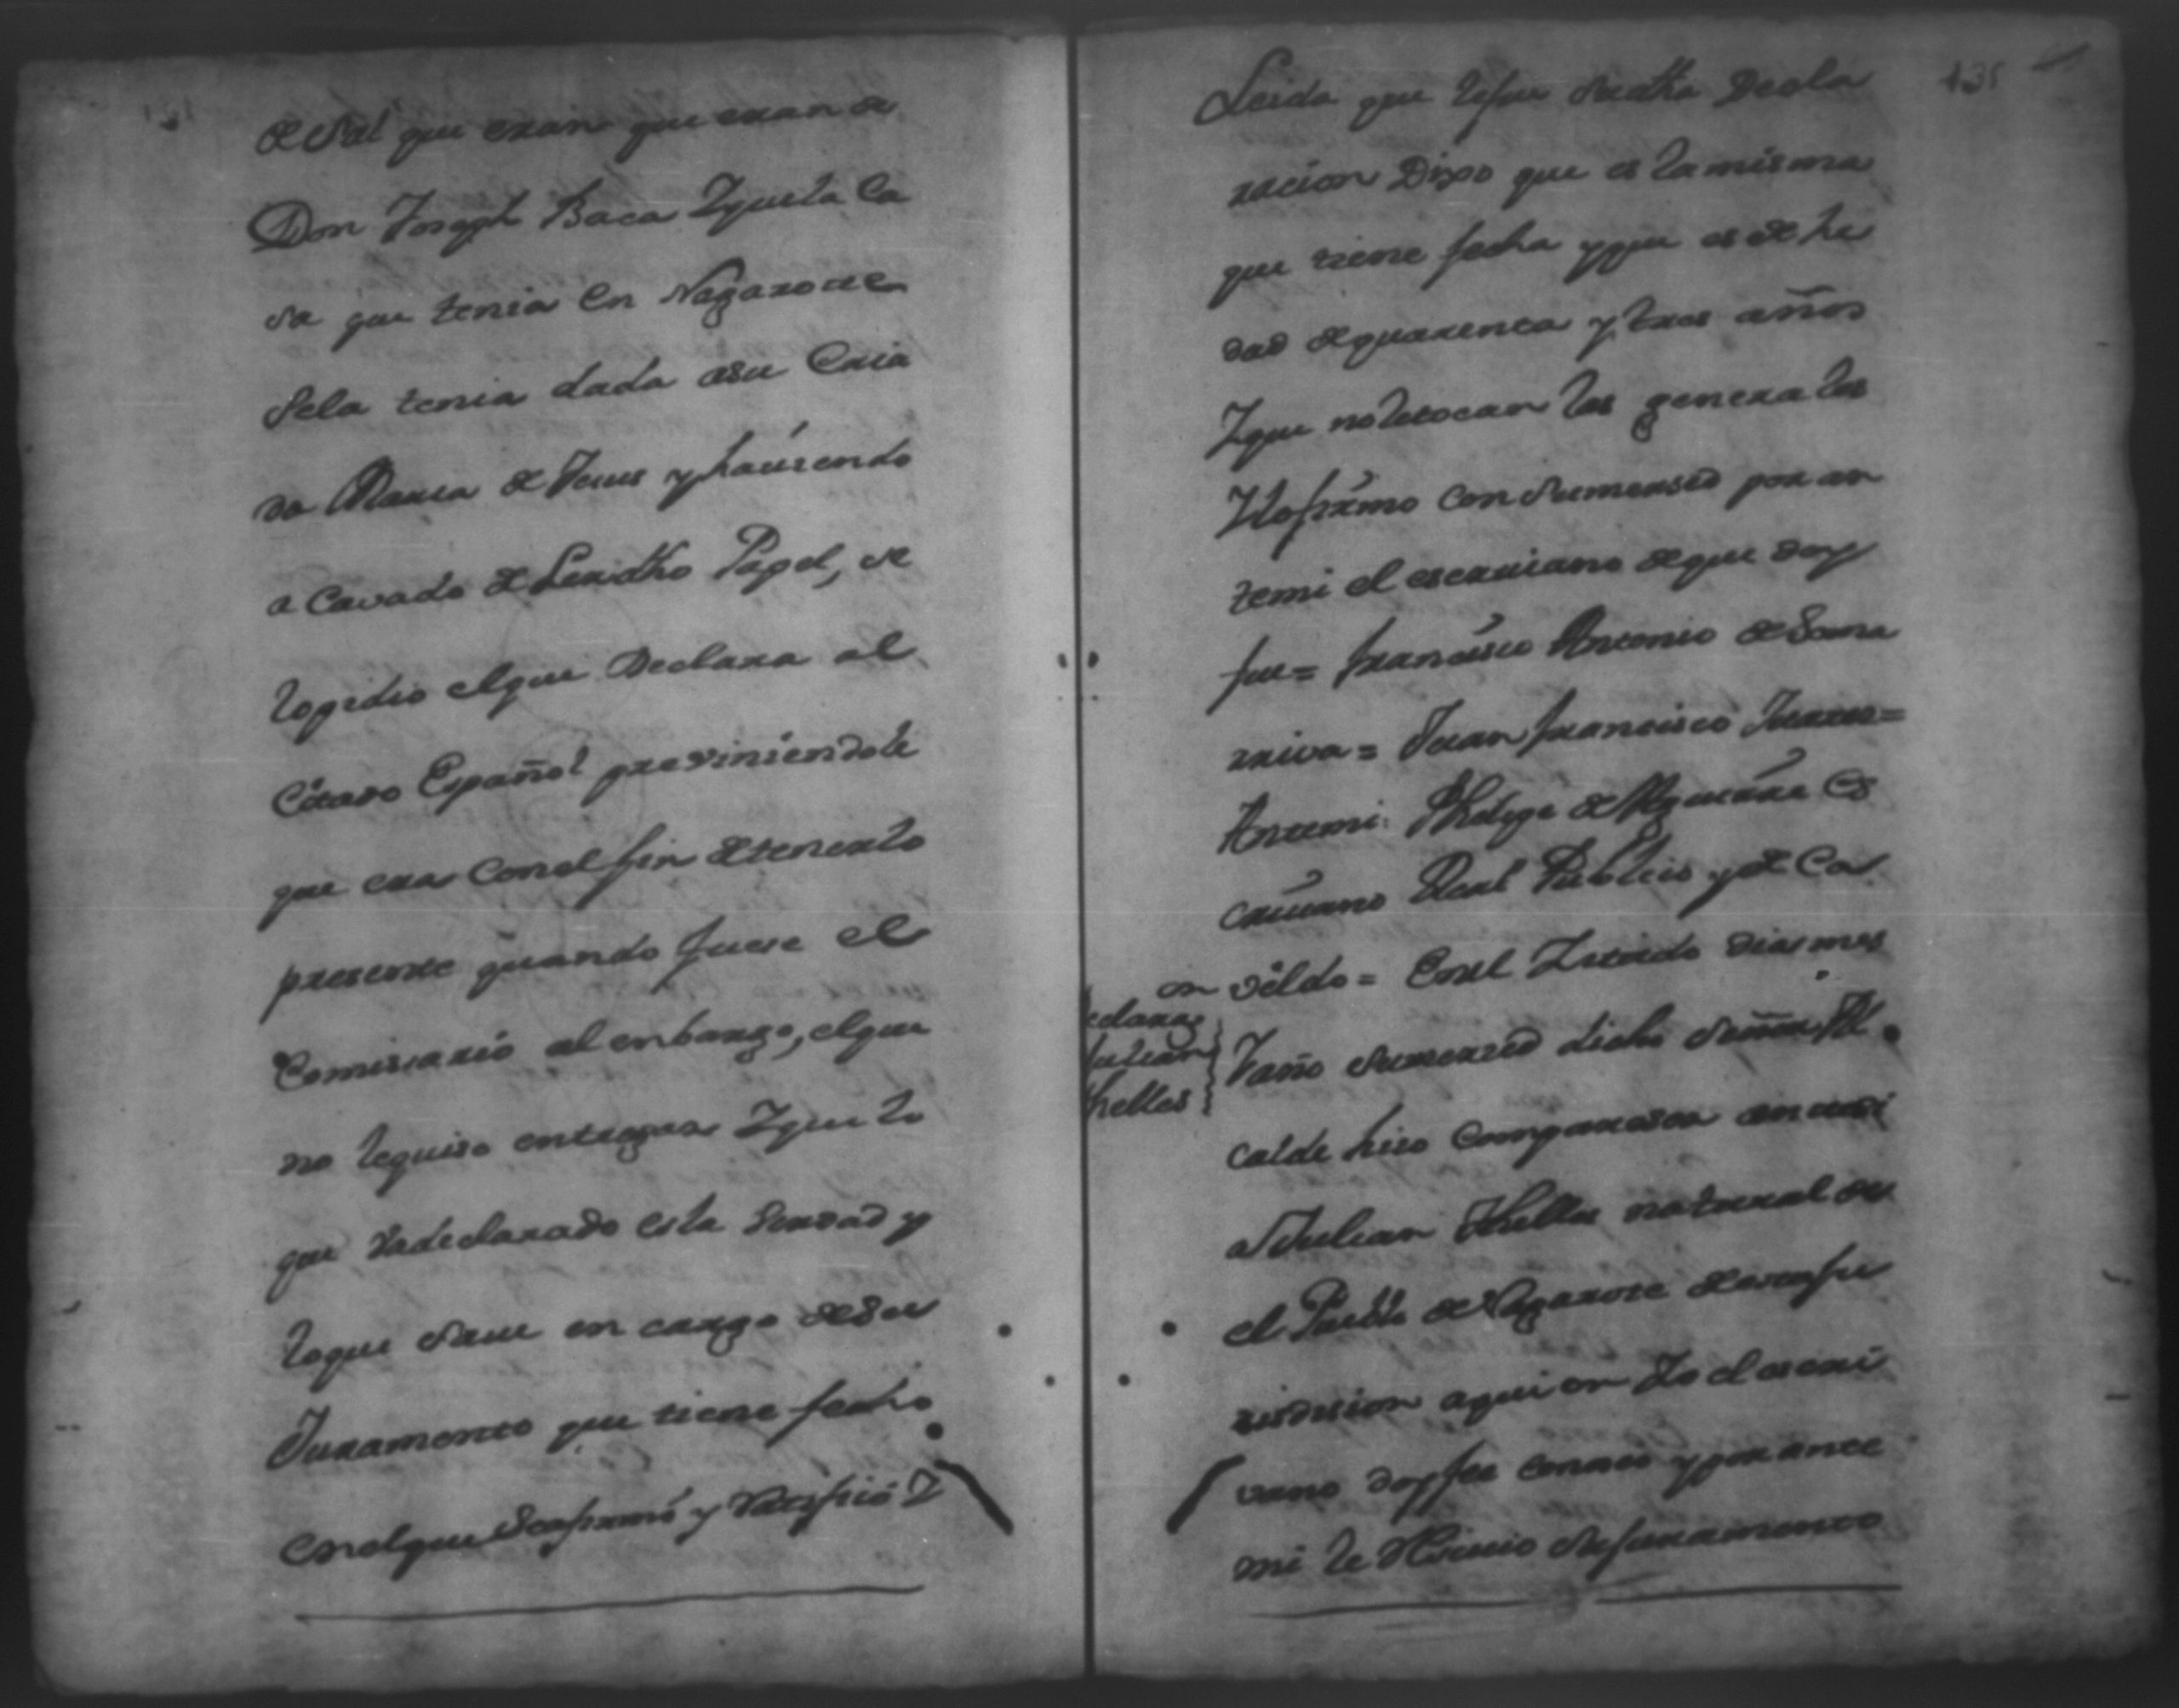 de Sal que eran que eran de
Don Joseph Baca Yque la Ca
sa que tenia en Nagarote
Sela tenia dada asu Cria
da Maria de Jesus y haviendo
acavado de Leer dho Papel, se
lo pidio elque Declara al
Citado Español previniendole
que era Con el fin de tenerlo
presente quando fuese el
Comissario al enbargo, elque
no le quiso entregar Yque lo
que ha declarado es la Verdad y
loque save en cargo de Su
Juramento que tiene fecho
en elque Se afirmó y Ratifficó Y
Leida que le fue Su dha Decla
racion Dixo que es la misma
que tiene fecha yque es de he
dad de quarenta y tres años
Yque no le tocan las generales
Y lo firmo Con Sumersed por an
temi el escrivano de que doy
fee = Francisco Antonio de Soma
rriva = Juan Francisco Juares =
Antemi Phelipe de Es
crivano Real Publico y de Ca
vildo = En el Zitado dia mes
on
eclaraz
Julian
thelles
Y año Sumersed dicho Señor Al
calde hiso Comparecer antemi
a Julian thelles natural de
el Pueblo de Nagarote de esta Ju
risdision a quien Yo el escri
vano doy fee conosco y por ante
mi le Resivio Su Juramento
135